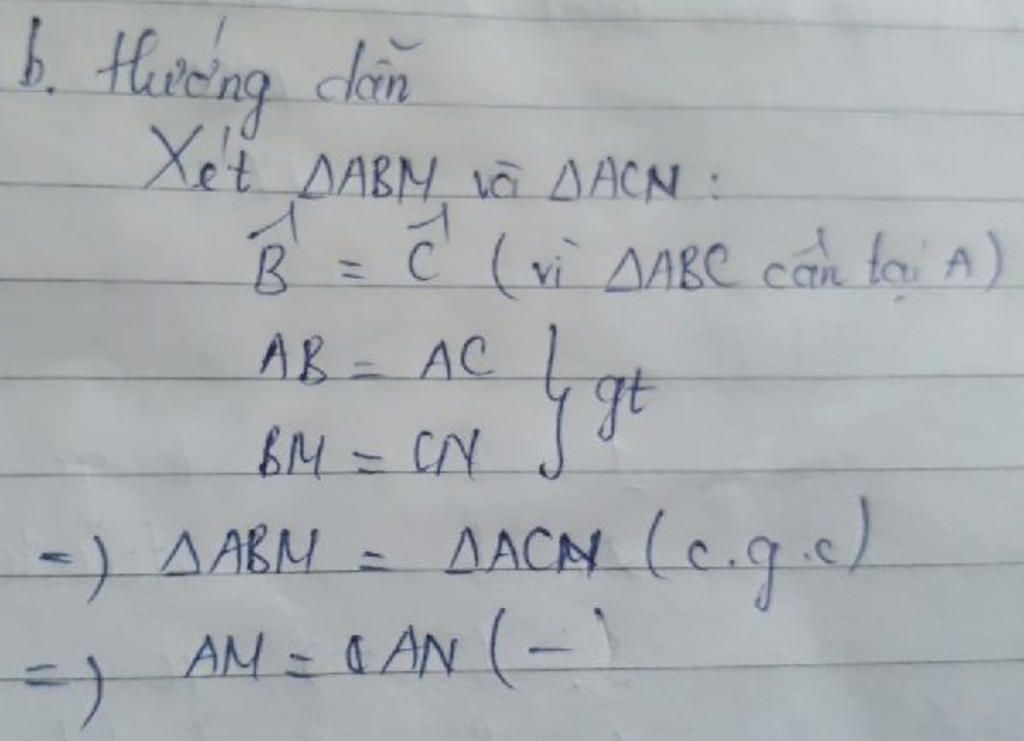 b. Hướng dẫn
Xét ΔABM và ΔACN :
B̂ = Ĉ (vì ΔABC cân tại A)
AB = AC } gt
BM = CN
=) ΔABM = ΔACN (c.g.c)
=) AM = AN (–)